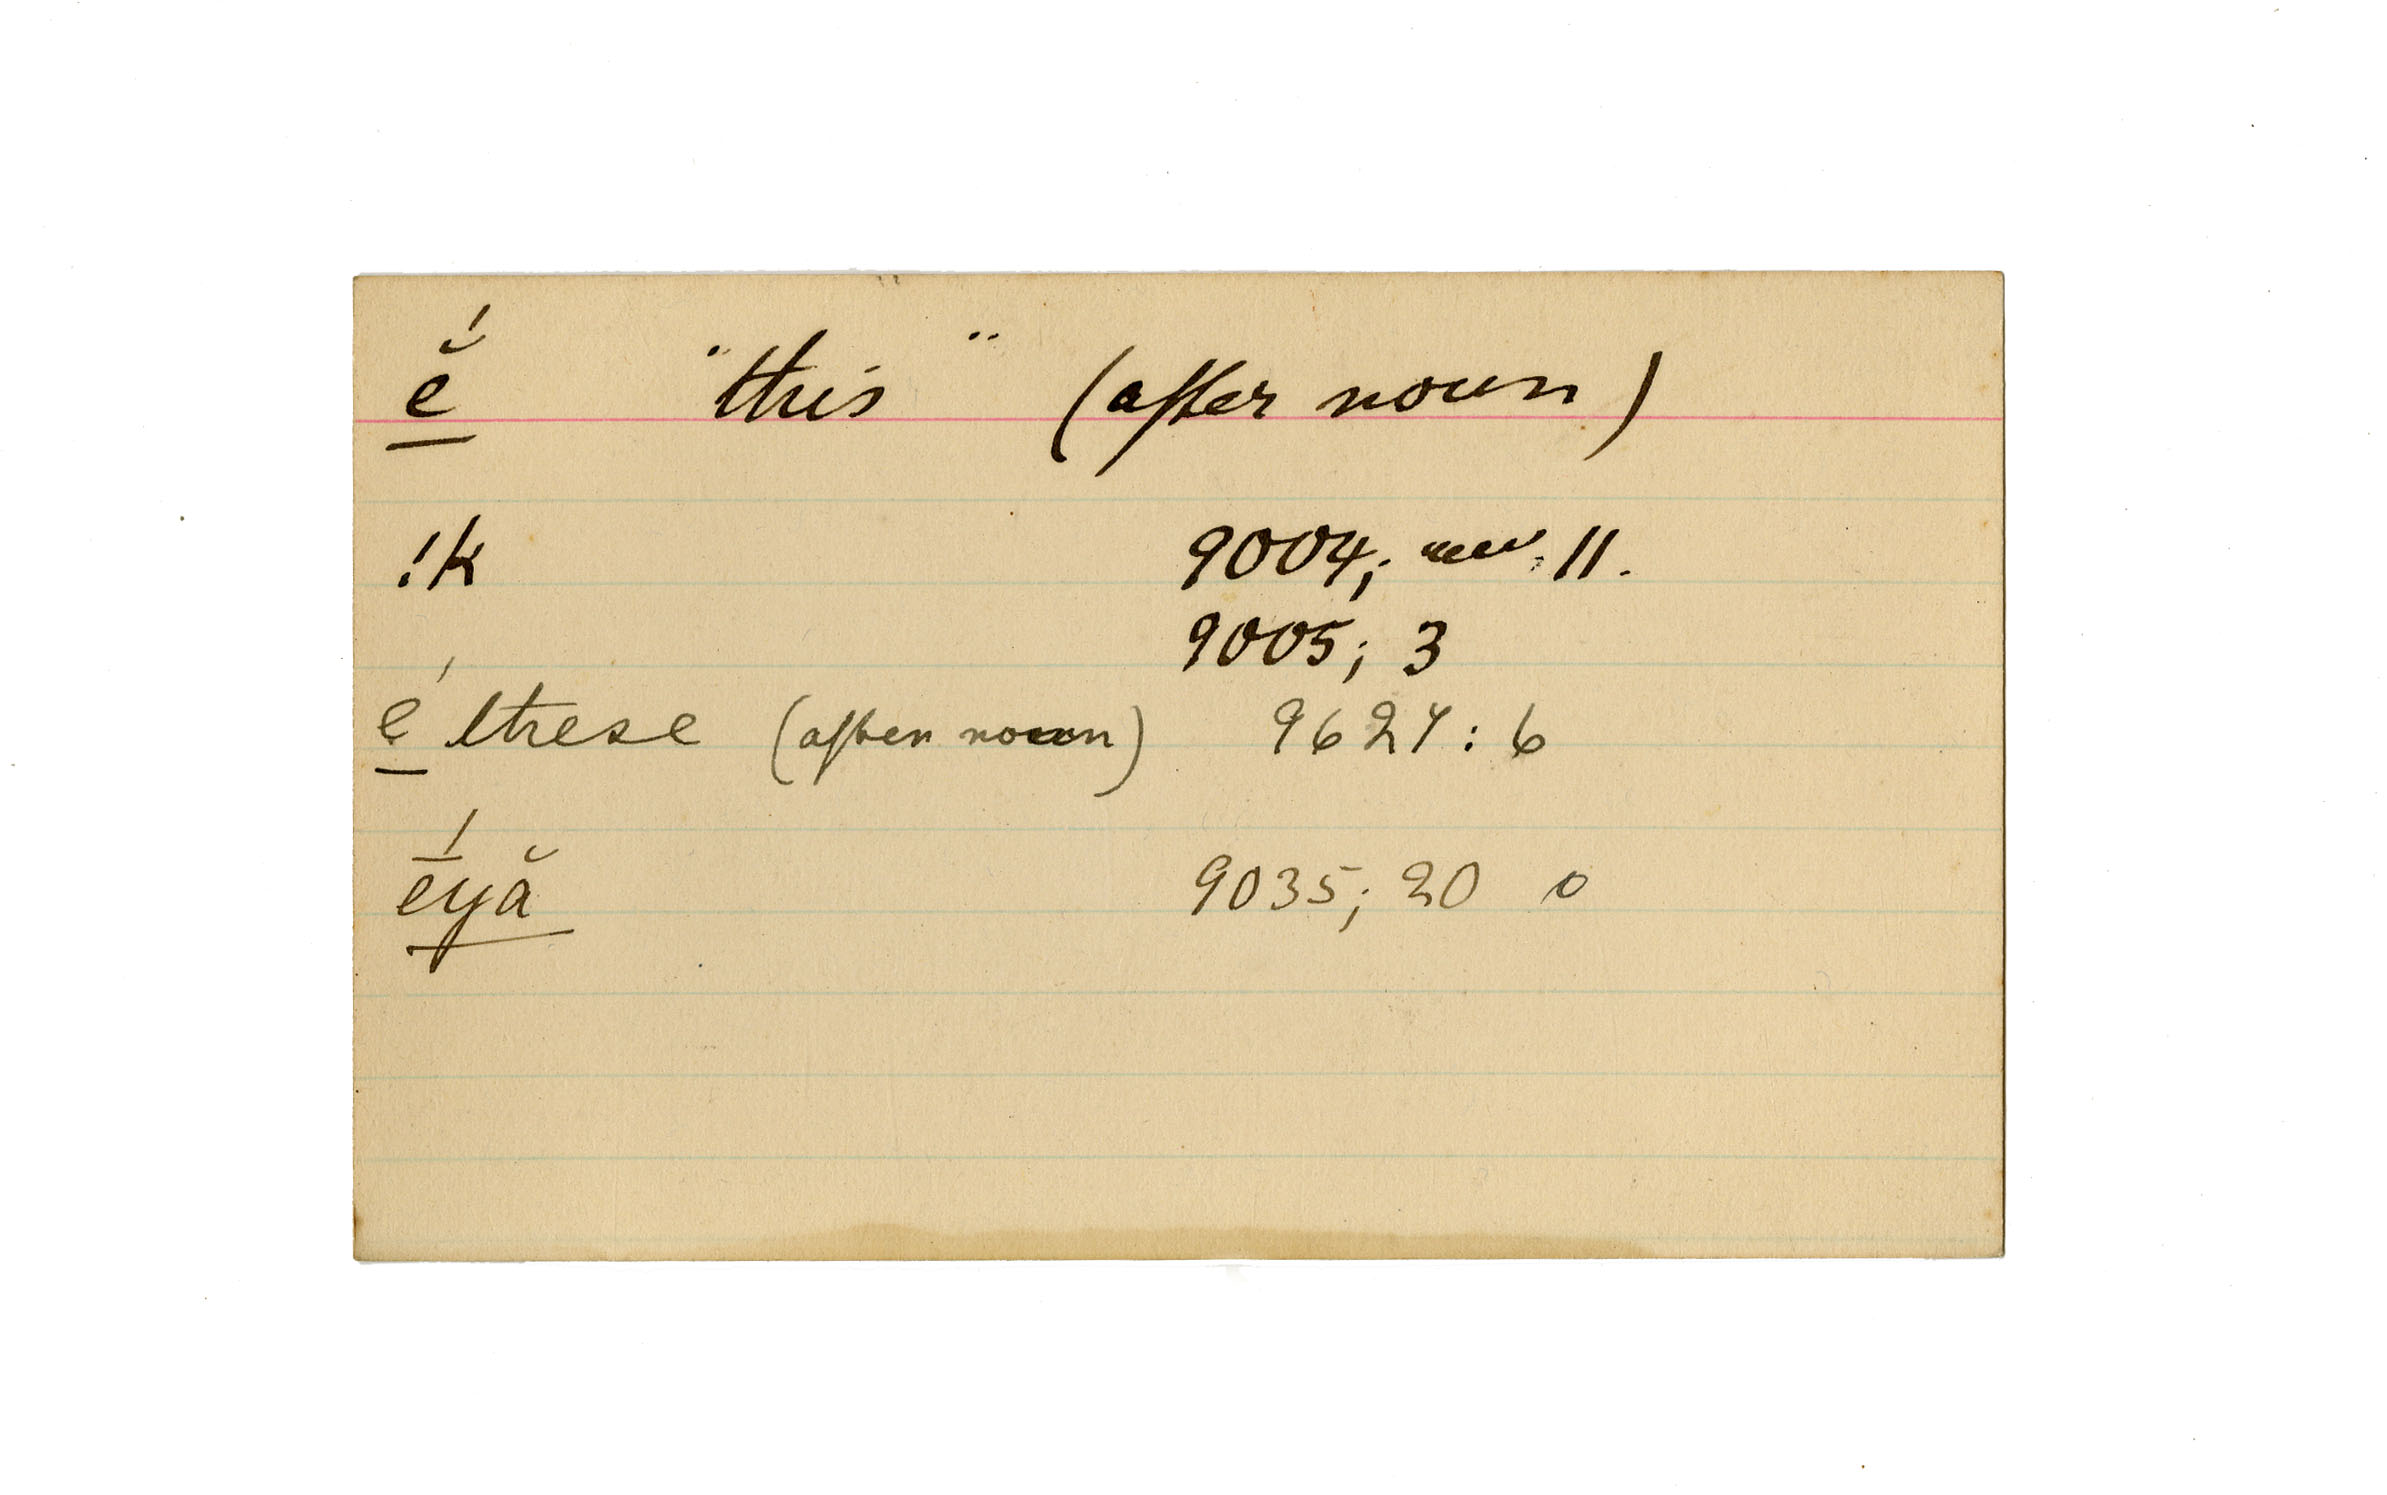 ĕ́ "this" (after noun)
!k 9004; 11.
9005; 3
é these (after noun) 9624: 6
ḗyă 9035; 20 o